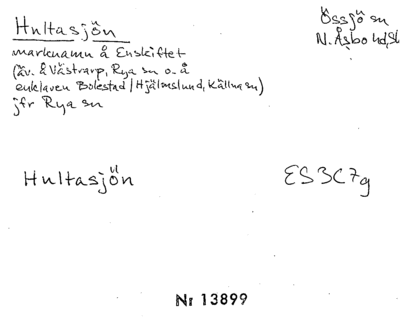 Hultasjön
Össjö sn
N. Åsbo hd, Sk
marknamn å Enskiftet
(äv. å Västrarp, Rya sn o. å
enklaven Bolestad / Hjälmslund, Källna sn)
jfr Rya sn
Hultasjön
ES3C7g
Nr 13899